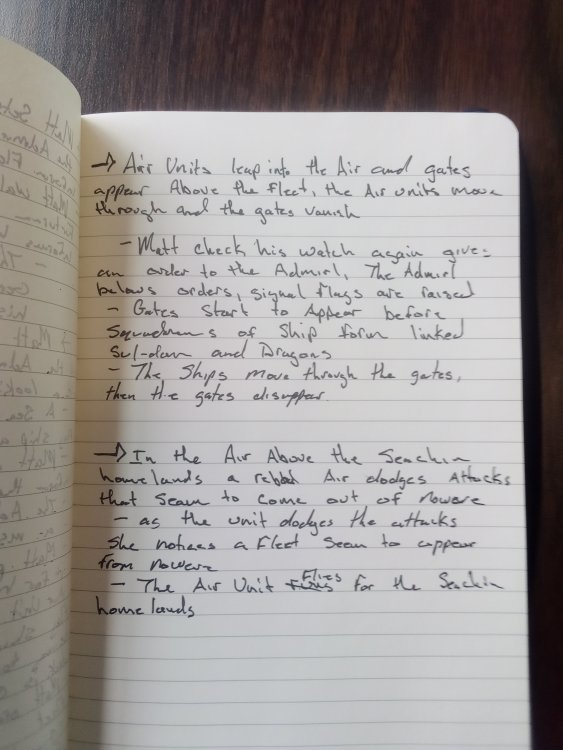 → Air Units leap into the Air and gates
appear Above the fleet, the Air units move
through and the gates vanish
- Matt check his watch again gives
an order to the Admirel, The Admirel
belows orders, signal flags are raised
- Gates start to Appear before
Squadrons of Ship form linked
Sul-dam and Dragons
- The Ships move through the gates,
then the gates disappear.
→ In the Air Above the Seachin
homelands a rebal Air dodges Attacks
that Seam to come out of nowere
- as the unit dodges the attacks
She notices a Fleet Seem to appear
from nowere
- The Air Unit Flies for the Seachin
homelands